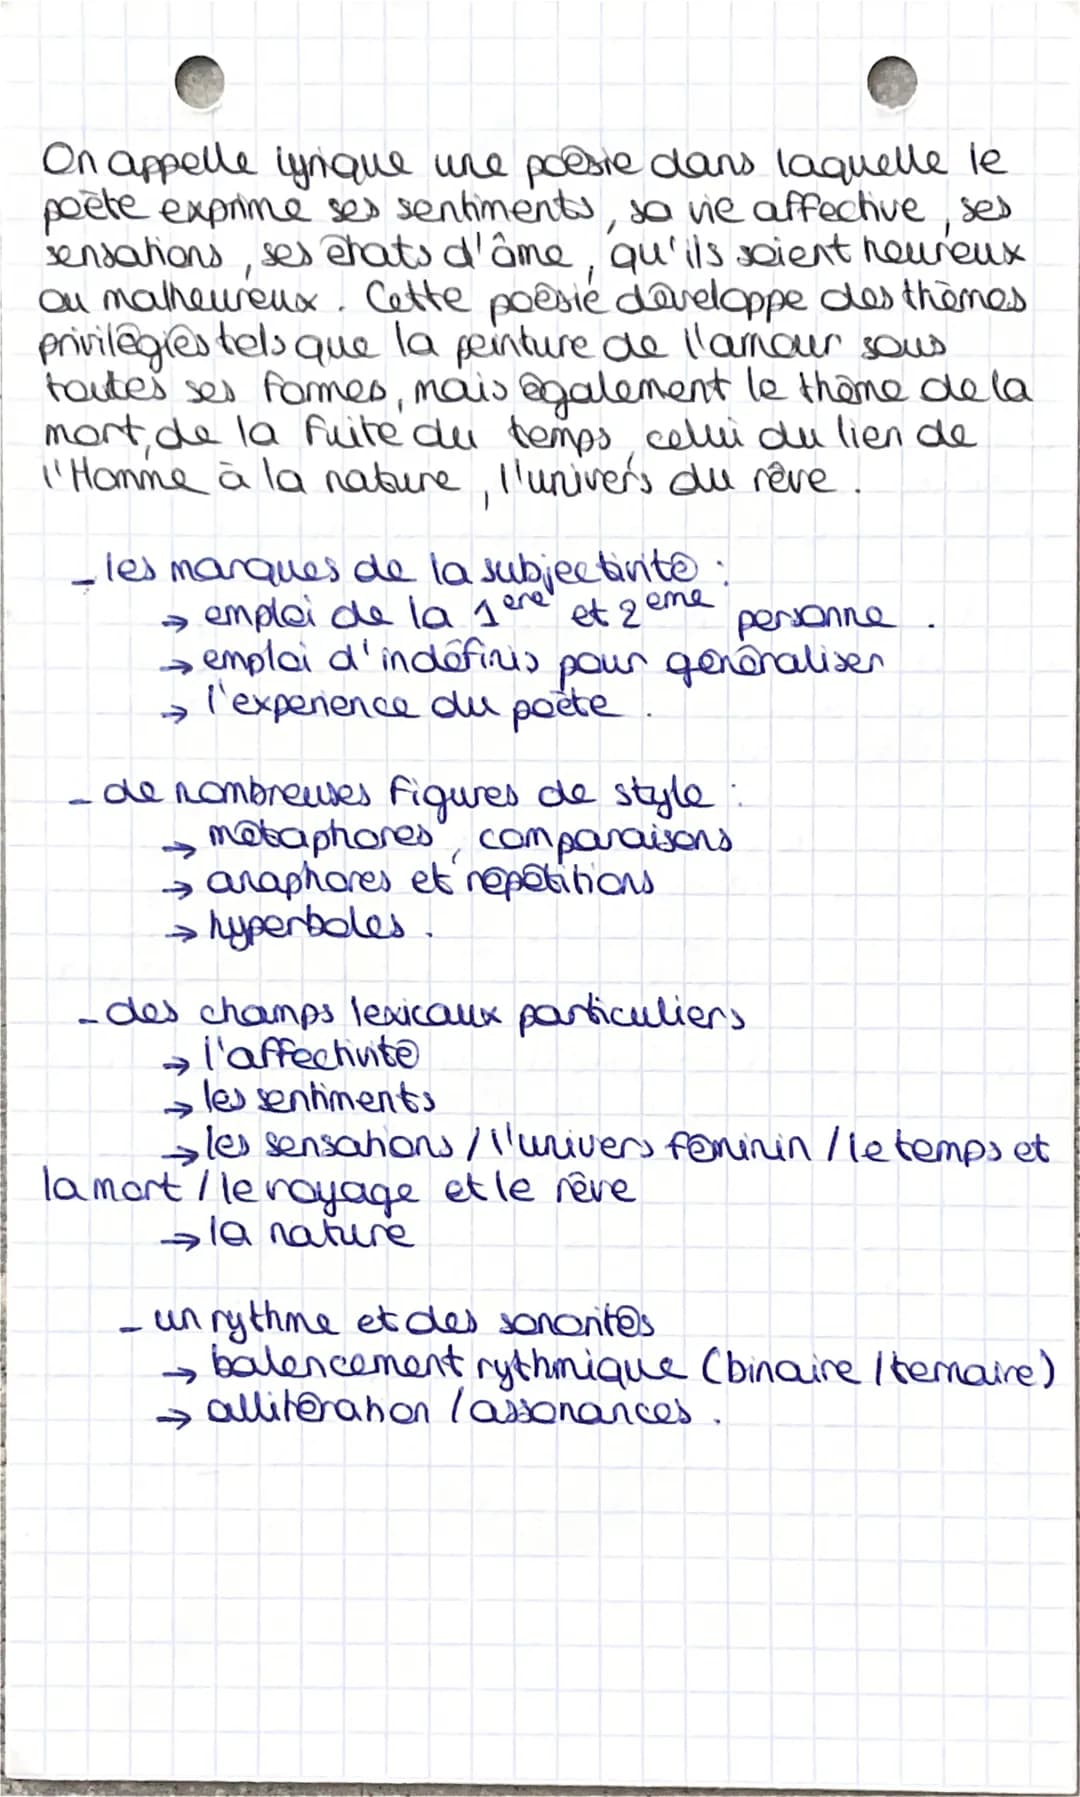 On appelle lyrique une poésie dans laquelle le
poète exprime ses sentiments, sa vie affective, ses
sensations, ses états d'âme, qu'ils soient heureux
ou malheureux. Cette poésie développe des thèmes
privilégiés tels que la peinture de l'amour sous
toutes ses formes, mais également le thème de la
mort, de la fuite du temps, celui du lien de
l'Homme à la nature, l'univers du rêve.
- les marques de la subjectivité :
→ emploi de la 1ère et 2ème personne.
→ emploi d'indéfinis pour généraliser
→ l'expérience du poète.
- de nombreuses figures de style :
→ métaphores, comparaisons
→ anaphores et répétitions
→ hyperboles.
- des champs lexicaux particuliers
→ l'affectivité
→ les sentiments
→ les sensations / l'univers féminin / le temps et
la mort / le voyage et le rêve
→ la nature
- un rythme et des sonorités
→ balencement rythmique (binaire / ternaire)
→ allitération / assonances.